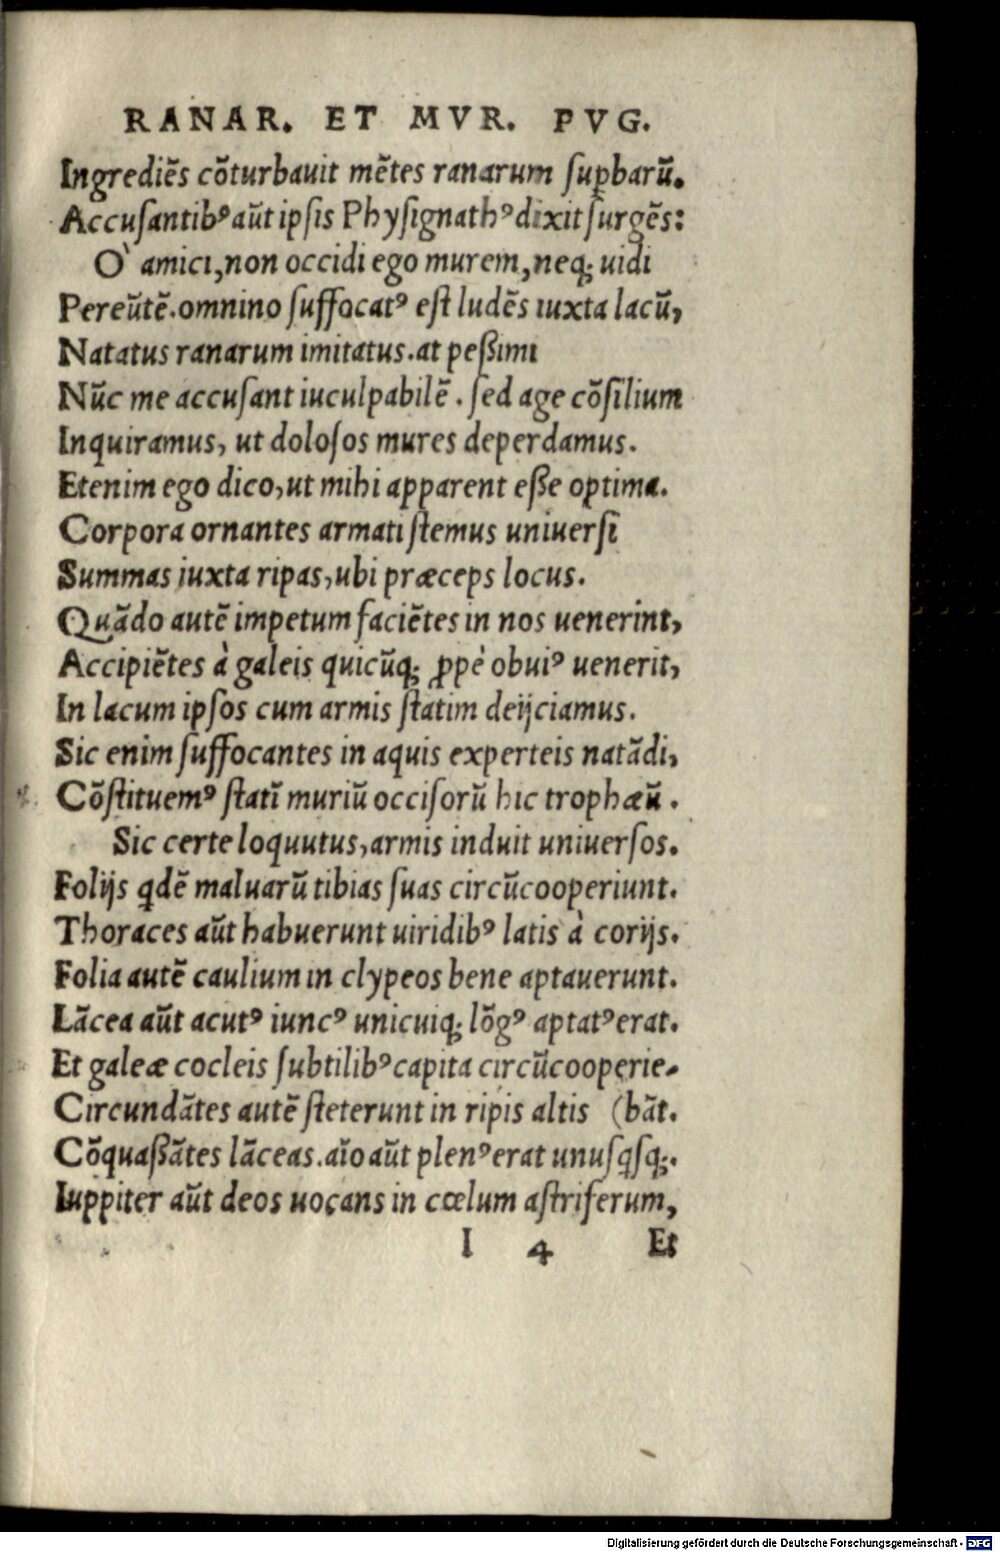 RANAR. ET MVR. PVG.
Ingrediẽs cõturbauit mẽtes ranarum suꝑbarũ.
Accusantibꝰ aũt ipsis Physignathꝰ dixit surgẽs:
O` amici, non occidi ego murem, neq; uidi
Pereũtẽ. omnino suffocatꝰ est ludẽs iuxta lacũ,
Natatus ranarum imitatus. at peßimi
Nũc me accusant iuculpabilẽ. sed age cõsilium
Inquiramus, ut dolosos mures deperdamus.
Etenim ego dico, ut mihi apparent eße optima.
Corpora ornantes armati stemus uniuersi
Summas iuxta ripas, ubi præceps locus.
Quãdo autẽ impetum faciẽtes in nos uenerint,
Accipiẽtes à galeis quicũq; ꝓpè obuiꝰ uenerit,
In lacum ipsos cum armis statim deijciamus.
Sic enim suffocantes in aquis experteis natãdi,
Cõstituemꝰ statĩ muriũ occisorũ hic trophæũ.
Sic certe loquutus, armis induit uniuersos.
Folijs qdẽ maluarũ tibias suas circũcooperiunt.
Thoraces aũt habuerunt uiridibꝰ latis à corijs.
Folia autẽ caulium in clypeos bene aptauerunt.
Lãcea aũt acutꝰ iuncꝰ unicuiq; lõgꝰ aptatꝰ erat.
Et galeæ cocleis subtilibꝰ capita circũcooperie-
Circundãtes autẽ steterunt in ripis altis (bãt.
Cõquaßãtes lãceas. aĩo aũt plenꝰ erat unusqsq;.
Iuppiter aũt deos uocans in cœlum astriferum,
I 4 Et
Digitalisierung gefördert durch die Deutsche Forschungsgemeinschaft - DFG